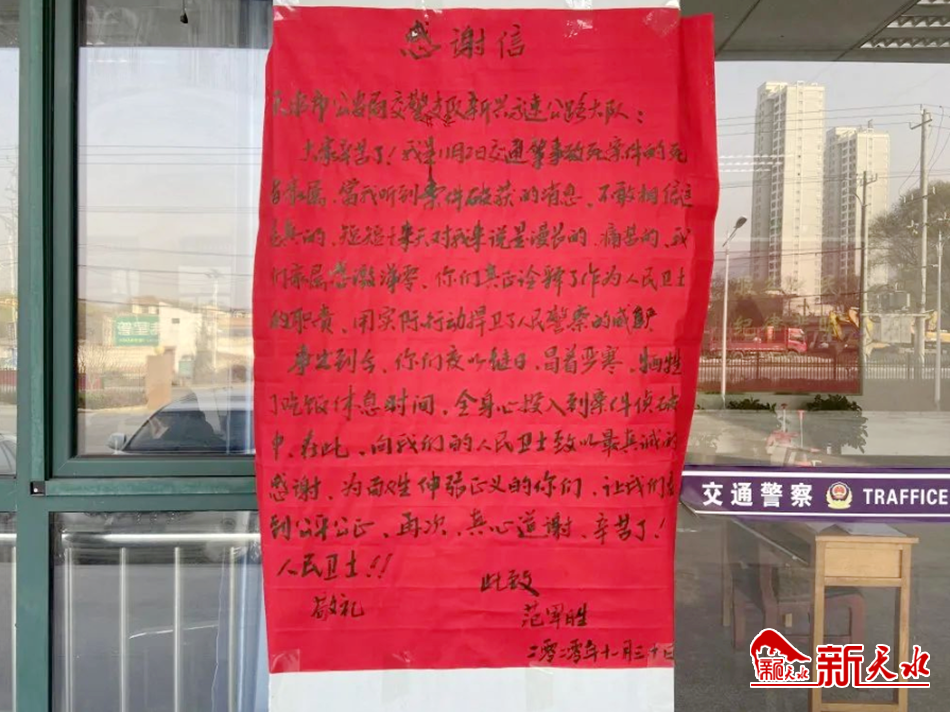 感谢信
天水市公安局交警支队新兴高速公路大队：
大家辛苦了！我是11月2日交通肇事致死案件的死
者家属，当我听到案件破获的消息，不敢相信这
是真的，短短十来天对我来说是漫长的，痛苦的，我
们亲属感激涕零，你们真正诠释了作为人民卫士
的职责，用实际行动捍卫了人民警察的威严
事发到今，你们夜以继日，冒着严寒，牺牲
了吃饭休息时间，全身心投入到案件侦破
中，在此，向我们的人民卫士致以最真诚的
感谢，为百姓伸张正义的你们，让我们看
到公平公正，再次，真心道谢，辛苦了！
人民卫士！！
此致
敬礼
范军胜
二零二零年十一月二十日
交通警察 TRAFFICE
新天水